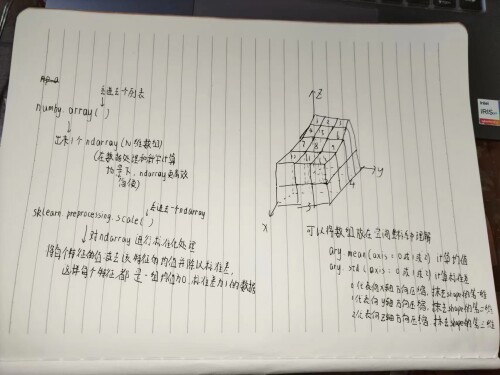 丢进去个列表
numpy.array( )
出来1个ndarray(N维数组)
(在数据处理和科学计算
场景下, ndarray更高效
便捷)
丢进去一个ndarray
sklearn.preprocessing.scale( )
对ndarray进行标准化处理
将每个特征的值在去该特征的均值并除以标准差,
这样每个特征都是一组均值为0,标准差为1的数据
Z
y
X
5
4
可以将数组放在空间坐标系中理解
ary.mean(axis=0或1或2) 计算均值
ary.std(axis=0或1或2) 计算标准差
0代表向X轴方向压缩, 抹去shape的第一维
1代表向Y轴方向压缩, 抹去shape的第二维
2代表向Z轴方向压缩, 抹去shape的第三维
IRIS